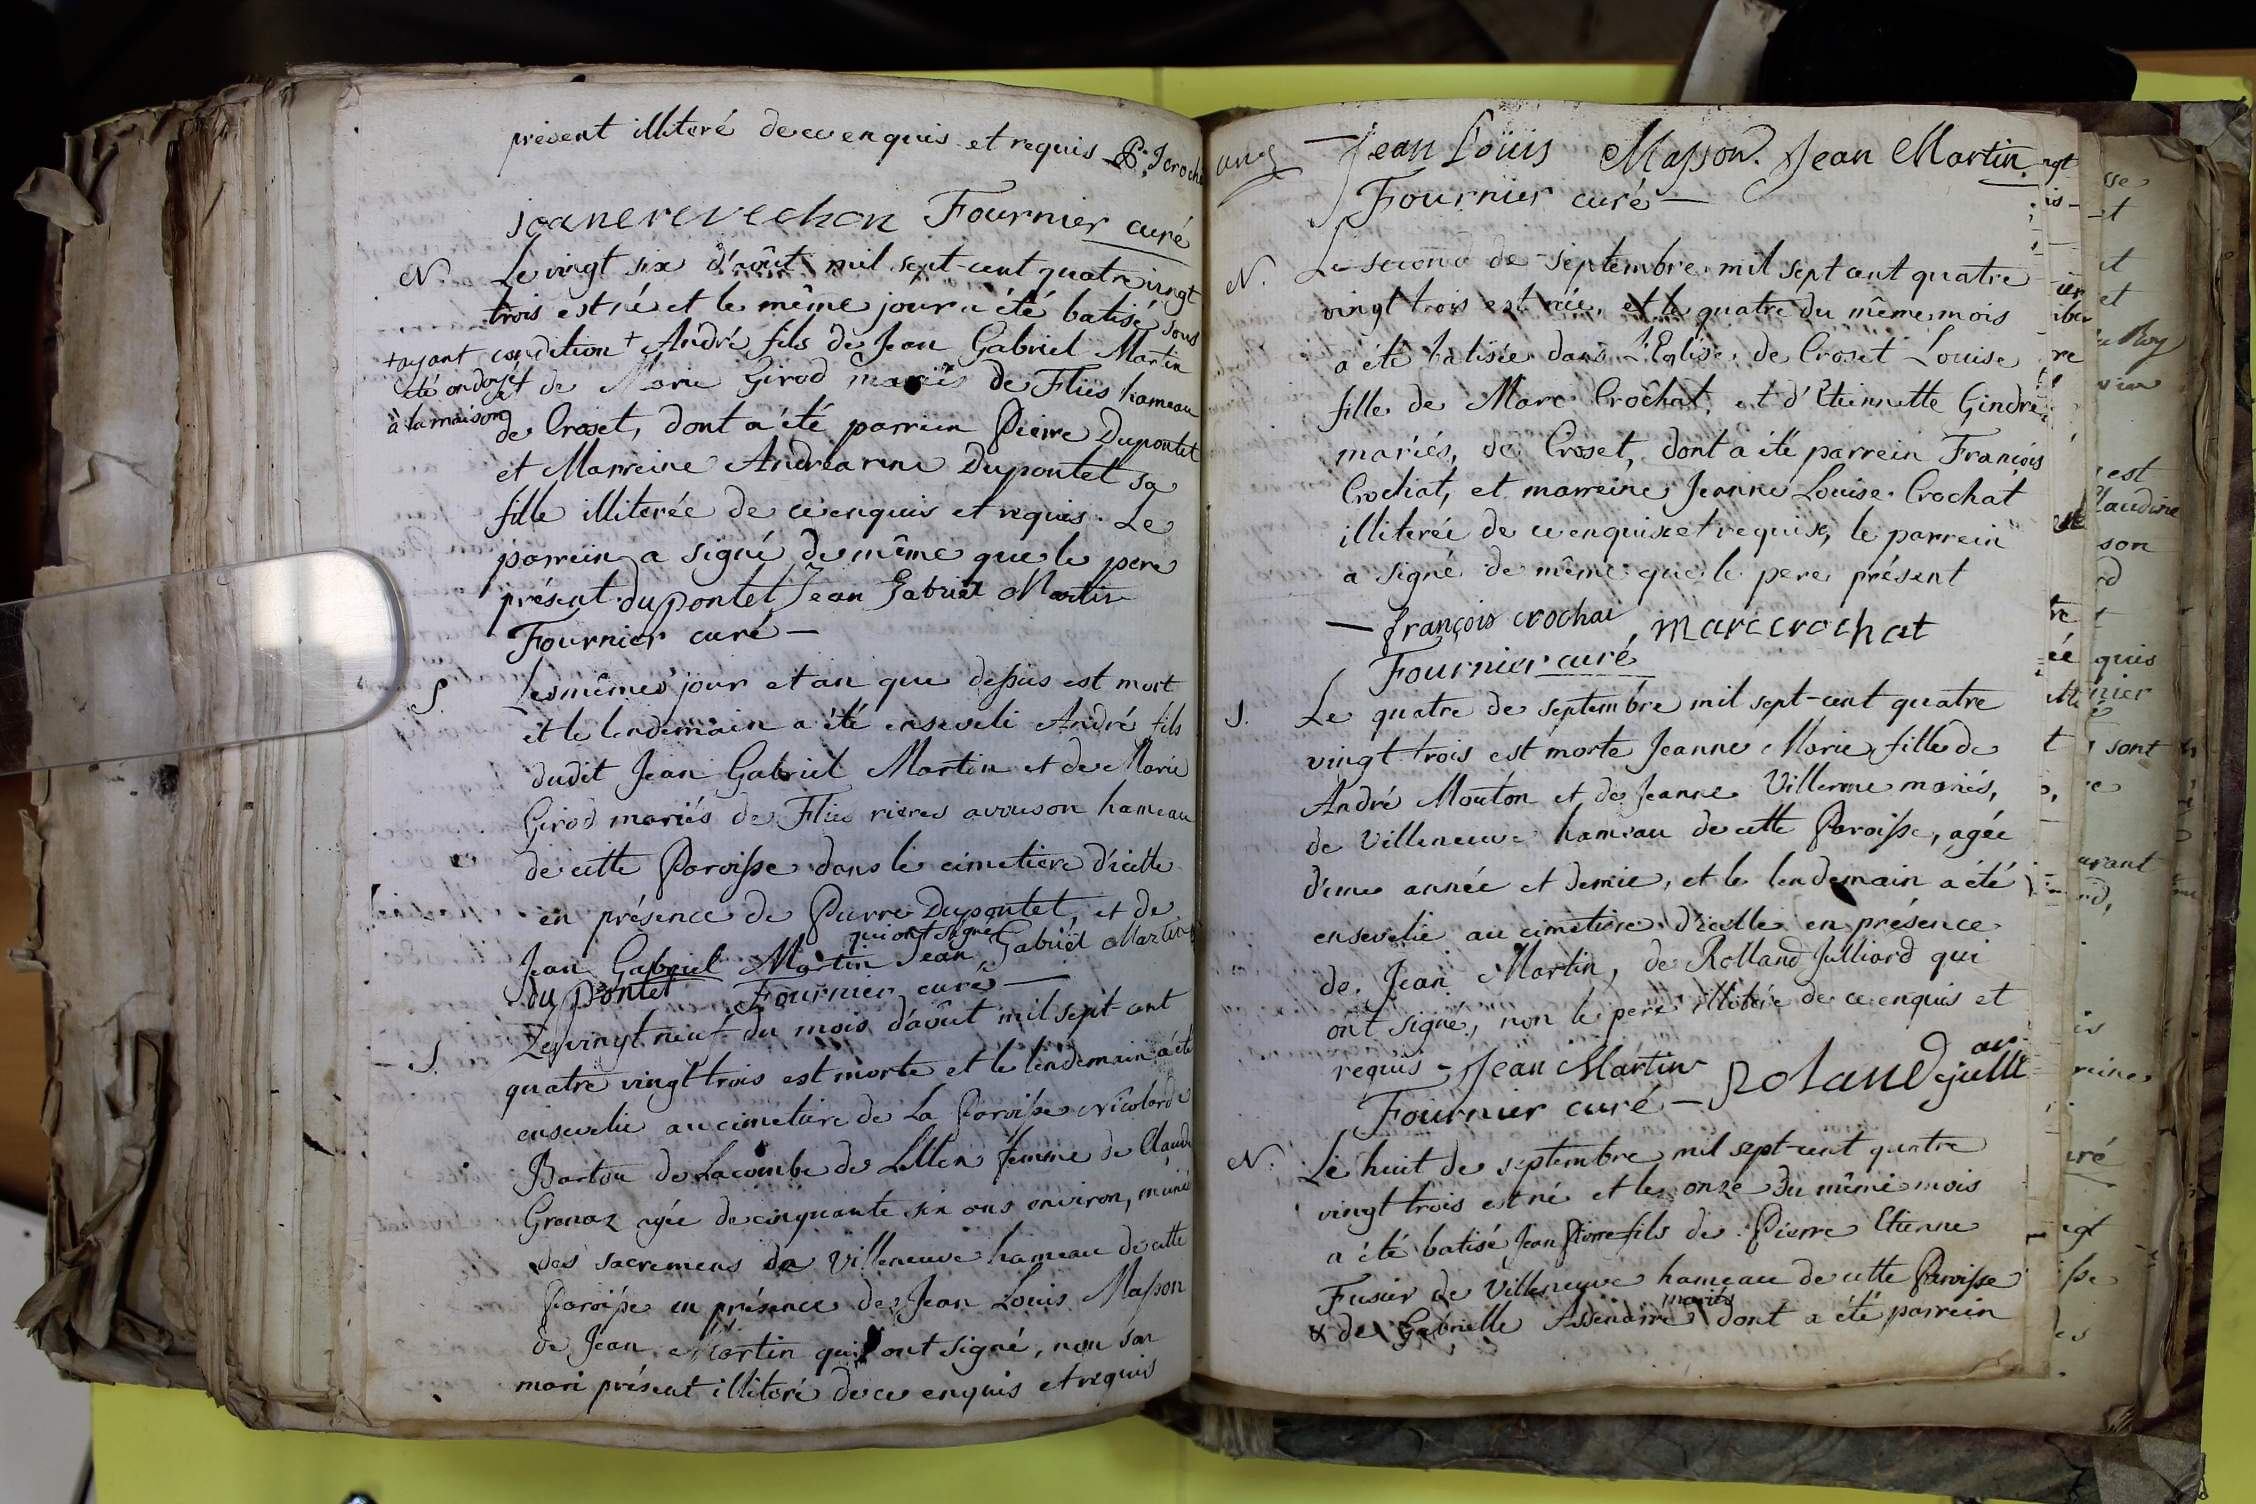 présent illiteré de ce enquis et requis
joanerevechon Fournier curé
N. Le vingt six d'août mil sept-cent quatre vingt
trois est né et le même jour a été batisé sous
condition + André fils de Jean Gabriel Martin
+ ayant été ondoyé à la maison
et de Marie Girod mariés de Flies hameau
de Croset, dont a été parrein Pierre Dupontet
et Marreine Andréanne Dupontet sa
fille illiterée de ce enquis et requis. Le
parrein a signé de même que le pere
présent. du pontet Jean Gabriel Martin
Fournier curé —
S. Les mêmes jour et an que dessus est mort
et le lendemain a été enseveli André fils
dudit Jean Gabriel Martin et de Marie
Girod mariés de Flies rieres avouson hameau
de cette Paroisse dans le cimetiere d'icelle
en présence de Pierre Dupontet, et de
Jean Gabriel Martin qui ont signé Jean Gabriel Martin
du pontet Fournier curé —
S. Le vingt neuf du mois d'août mil sept-cent
quatre vingt trois est morte et le lendemain a été
ensevelie au cimetiere de la Paroisse Nicolarde
Barton de Lacombe de femme de Claude
Grenaz agée de cinquante six ans environ, munie
des sacremens de Villeneuve hameau de cette
Paroisse en présence de Jean Louis Masson
de Jean Martin qui ont signé, non son
mari présent illiteré de ce enquis et requis
Jean Loüis Masson. Jean Martin.
Fournier curé —
N. Le second de septembre mil sept cent quatre
vingt trois est née, et le quatre du même mois
a été batisée dans l'Eglise de Croset Louise
fille de Marc Crochat, et d'Etiennette Gindre
mariés, de Croset, dont a été parrein François
Crochat, et marreine Jeanne Louise Crochat
illiterée de ce enquise et requise, le parrein
a signé de même que le pere présent
— françois crochat, marc crochat
Fournier curé
S. Le quatre de septembre mil sept-cent quatre
vingt trois est morte Jeanne Marie fille de
André Mouton et de Jeanne Villerme mariés,
de Villeneuve hameau de cette Paroisse, agée
d'une année et demie, et le lendemain a été
ensevelie au cimetiere d'icelle en présence
de Jean Martin, de Rolland Julliard qui
ont signé, non le pere illiteré de ce enquis et
requis — Jean Martin Roland julli
Fournier curé —
N. Le huit de septembre mil sept-cent quatre
vingt trois est né et le onze du même mois
a été batisé Jean Pierre fils de Pierre Etienne
Fusier de Villeneuve hameau de cette Paroisse
& de Gabrielle mariés dont a été parrein